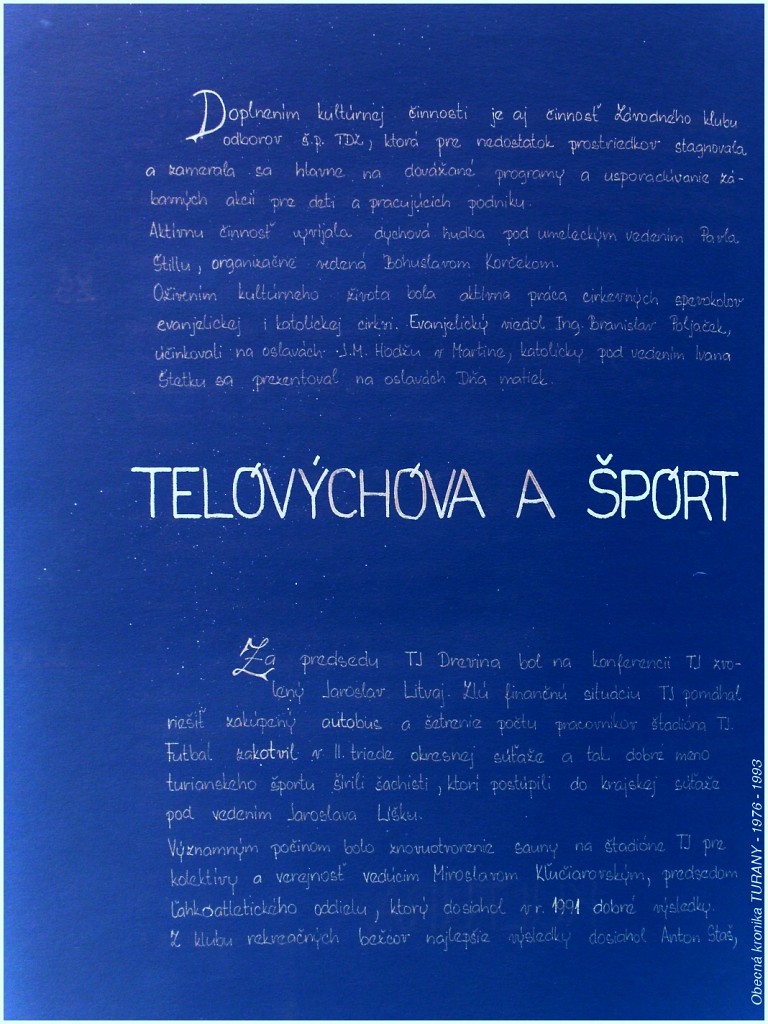 Doplnením kultúrnej činnosti je aj činnosť Závodného klubu
odborov š.p. TDŽ, ktorá pre nedostatok prostriedkov stagnovala
a zamerala sa hlavne na dovážané programy a usporadúvanie zá-
bavných akcií pre deti a pracujúcich podniku.
Aktívnu činnosť vyvíjala dychová hudba pod umeleckým vedením Pavla
Štillu, organizačne vedená Bohuslavom Korčekom.
Oživením kultúrneho života bola aktívna práca cirkevných spevokolov
evanjelickej i katolíckej cirkvi. Evanjelický viedol Ing. Branislav Poljaček,
účinkovali na oslavách J.M. Hodžu v Martine, katolícky pod vedením Ivana
Štetku sa prezentoval na oslavách Dňa matiek.
TELOVÝCHOVA A ŠPORT
Za predsedu TJ Drevina bol na konferencii TJ zvo-
lený Jaroslav Litvaj. Zlú finančnú situáciu TJ pomáhal
riešiť zakúpený autobus a šetrenie počtu pracovníkov štadióna TJ.
Futbal zakotvil v II. triede okresnej súťaže a tak dobré meno
turianskeho športu šírili šachisti, ktorí postúpili do krajskej súťaže
pod vedením Jaroslava Lišku.
Významným počinom bolo znovuotvorenie sauny na štadióne TJ pre
kolektívy a verejnosť vedúcim Miroslavom Kľučiarovským, predsedom
Ľahkoatletického oddielu, ktorý dosiahol v r. 1991 dobré výsledky.
Z klubu rekreačných bežcov najlepšie výsledky dosiahol Anton Staš,
Obecná kronika TURANY - 1976 - 1993